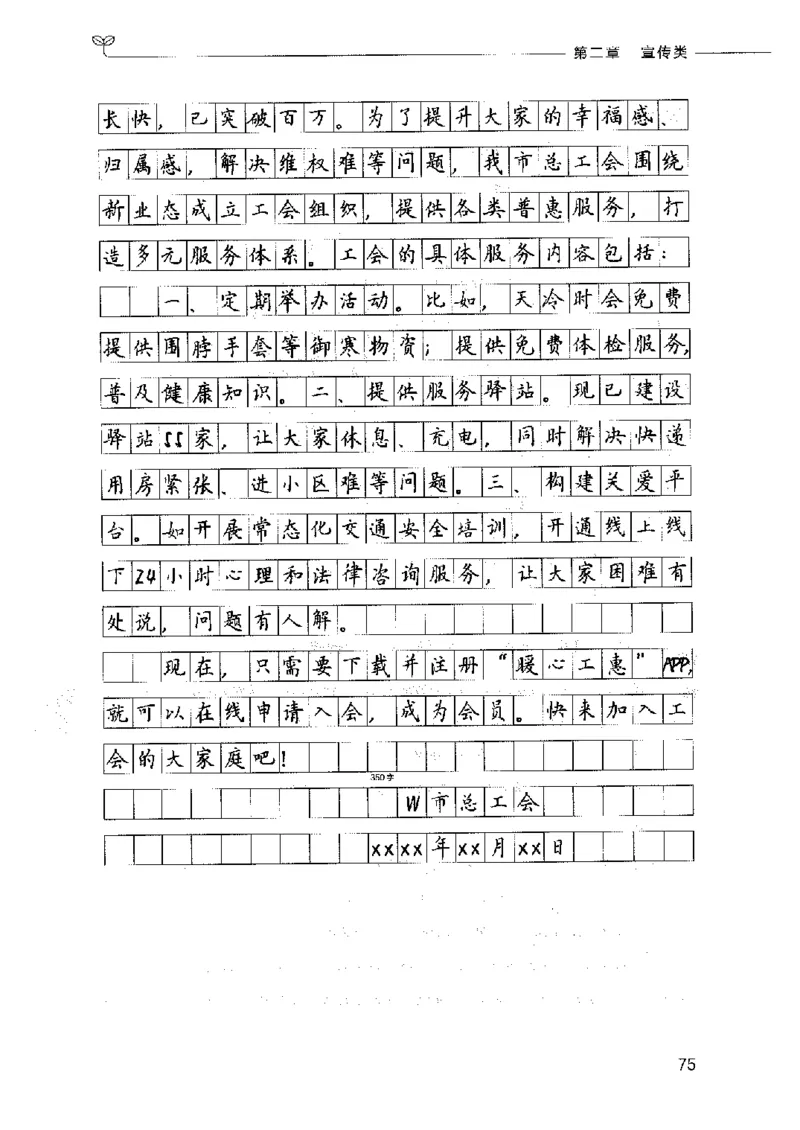 第二章 宣传类
长快，已突破百万。为了提升大家的幸福感、
归属感，解决维权难等问题，我市总工会围绕
新业态成立工会组织，提供各类普惠服务，打
造多元服务体系。工会的具体服务内容包括：
一、定期举办活动。比如，天冷时会免费
提供围脖手套等御寒物资；提供免费体检服务，
普及健康知识。二、提供服务驿站。现已建设
驿站55家，让大家休息、充电，同时解决快递
用房紧张、进小区难等问题。三、构建关爱平
台。如开展常态化交通安全培训，开通线上线
下24小时心理和法律咨询服务，让大家困难有
处说，问题有人解。
现在，只需要下载并注册“暖心工惠”APP，
就可以在线申请入会，成为会员。快来加入工
会的大家庭吧！
350字
W市总工会
xxxx年xx月xx日
75